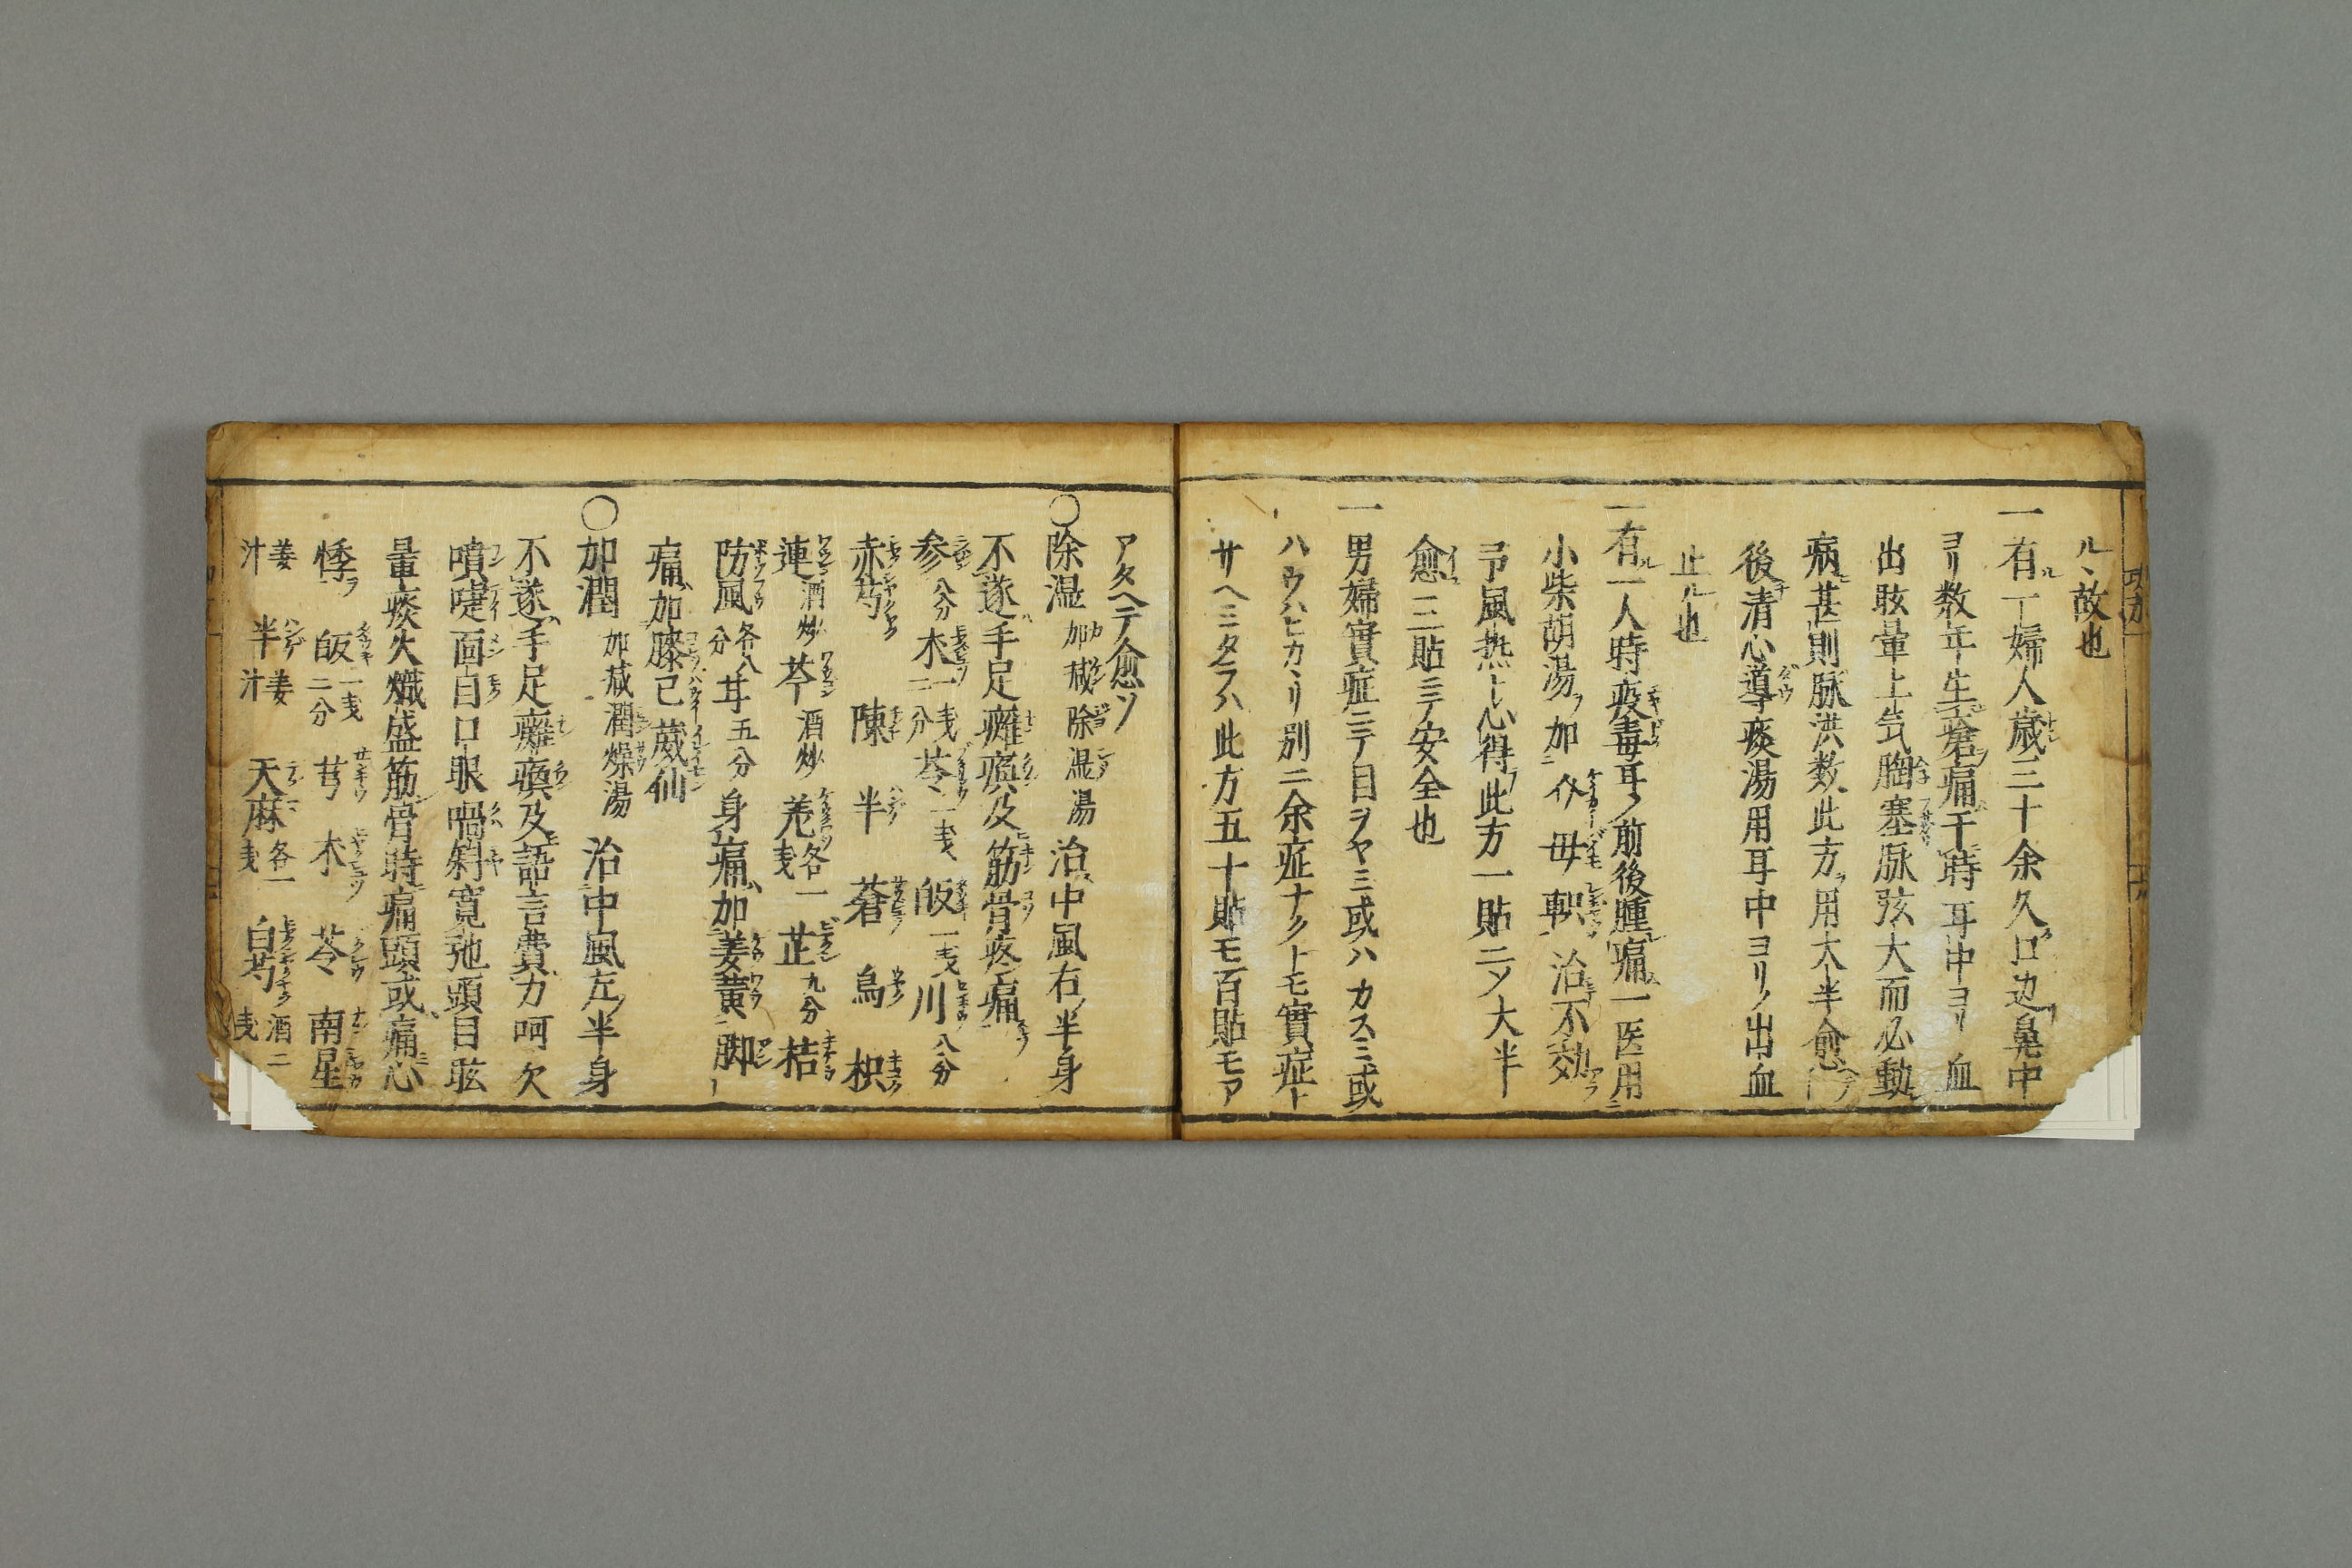 ル丶故也
一有一婦人歳三十余久口边鼻中
ヨリ数年生瘡痛干時耳中ヨリ血
出眩暈上気胸塞脉弦大而必動
病甚則脉洪数此方用大半愈
後清心導痰湯用耳中ヨリノ出血
止ル也
一有一人時疫毒耳ノ前後腫痛一医用
小柴胡湯加 毋 治不効
予風熱ト心得此方一貼ニメ大半
愈二三貼ニテ安全也
一男婦實症ニテ目ヲヤミ或ハカスミ或
ハウハヒカリ別ニ余症ナクトモ實症ト
サヘミタラハ此方五十貼モ百貼モア
アタヘテ愈ソ
○除湿 加减除湿湯 治中風右ノ半身
不遂手足癱瘓及筋骨疼痛
参八分 木一戋二分 苓一戋 皈一戋 川八分
赤芍 陳 半 蒼 烏 枳
連酒炒 芩酒炒 羌各一戋 芷九分 桔
防風各八分 甘五分 身痛加姜黄脚
痛加膝己葳仙
○加潤 加减潤燥湯 治中風左ノ半身
不遂手足癱瘓及語言費力呵欠
噴嚏面目口眼喎斜寛弛頭目眩
暈痰火熾盛筋骨時痛頭或痛心
悸 皈一戋二分 芎 木 苓 南星
姜汁 半姜汁 天麻各一戋 白芍酒二戋